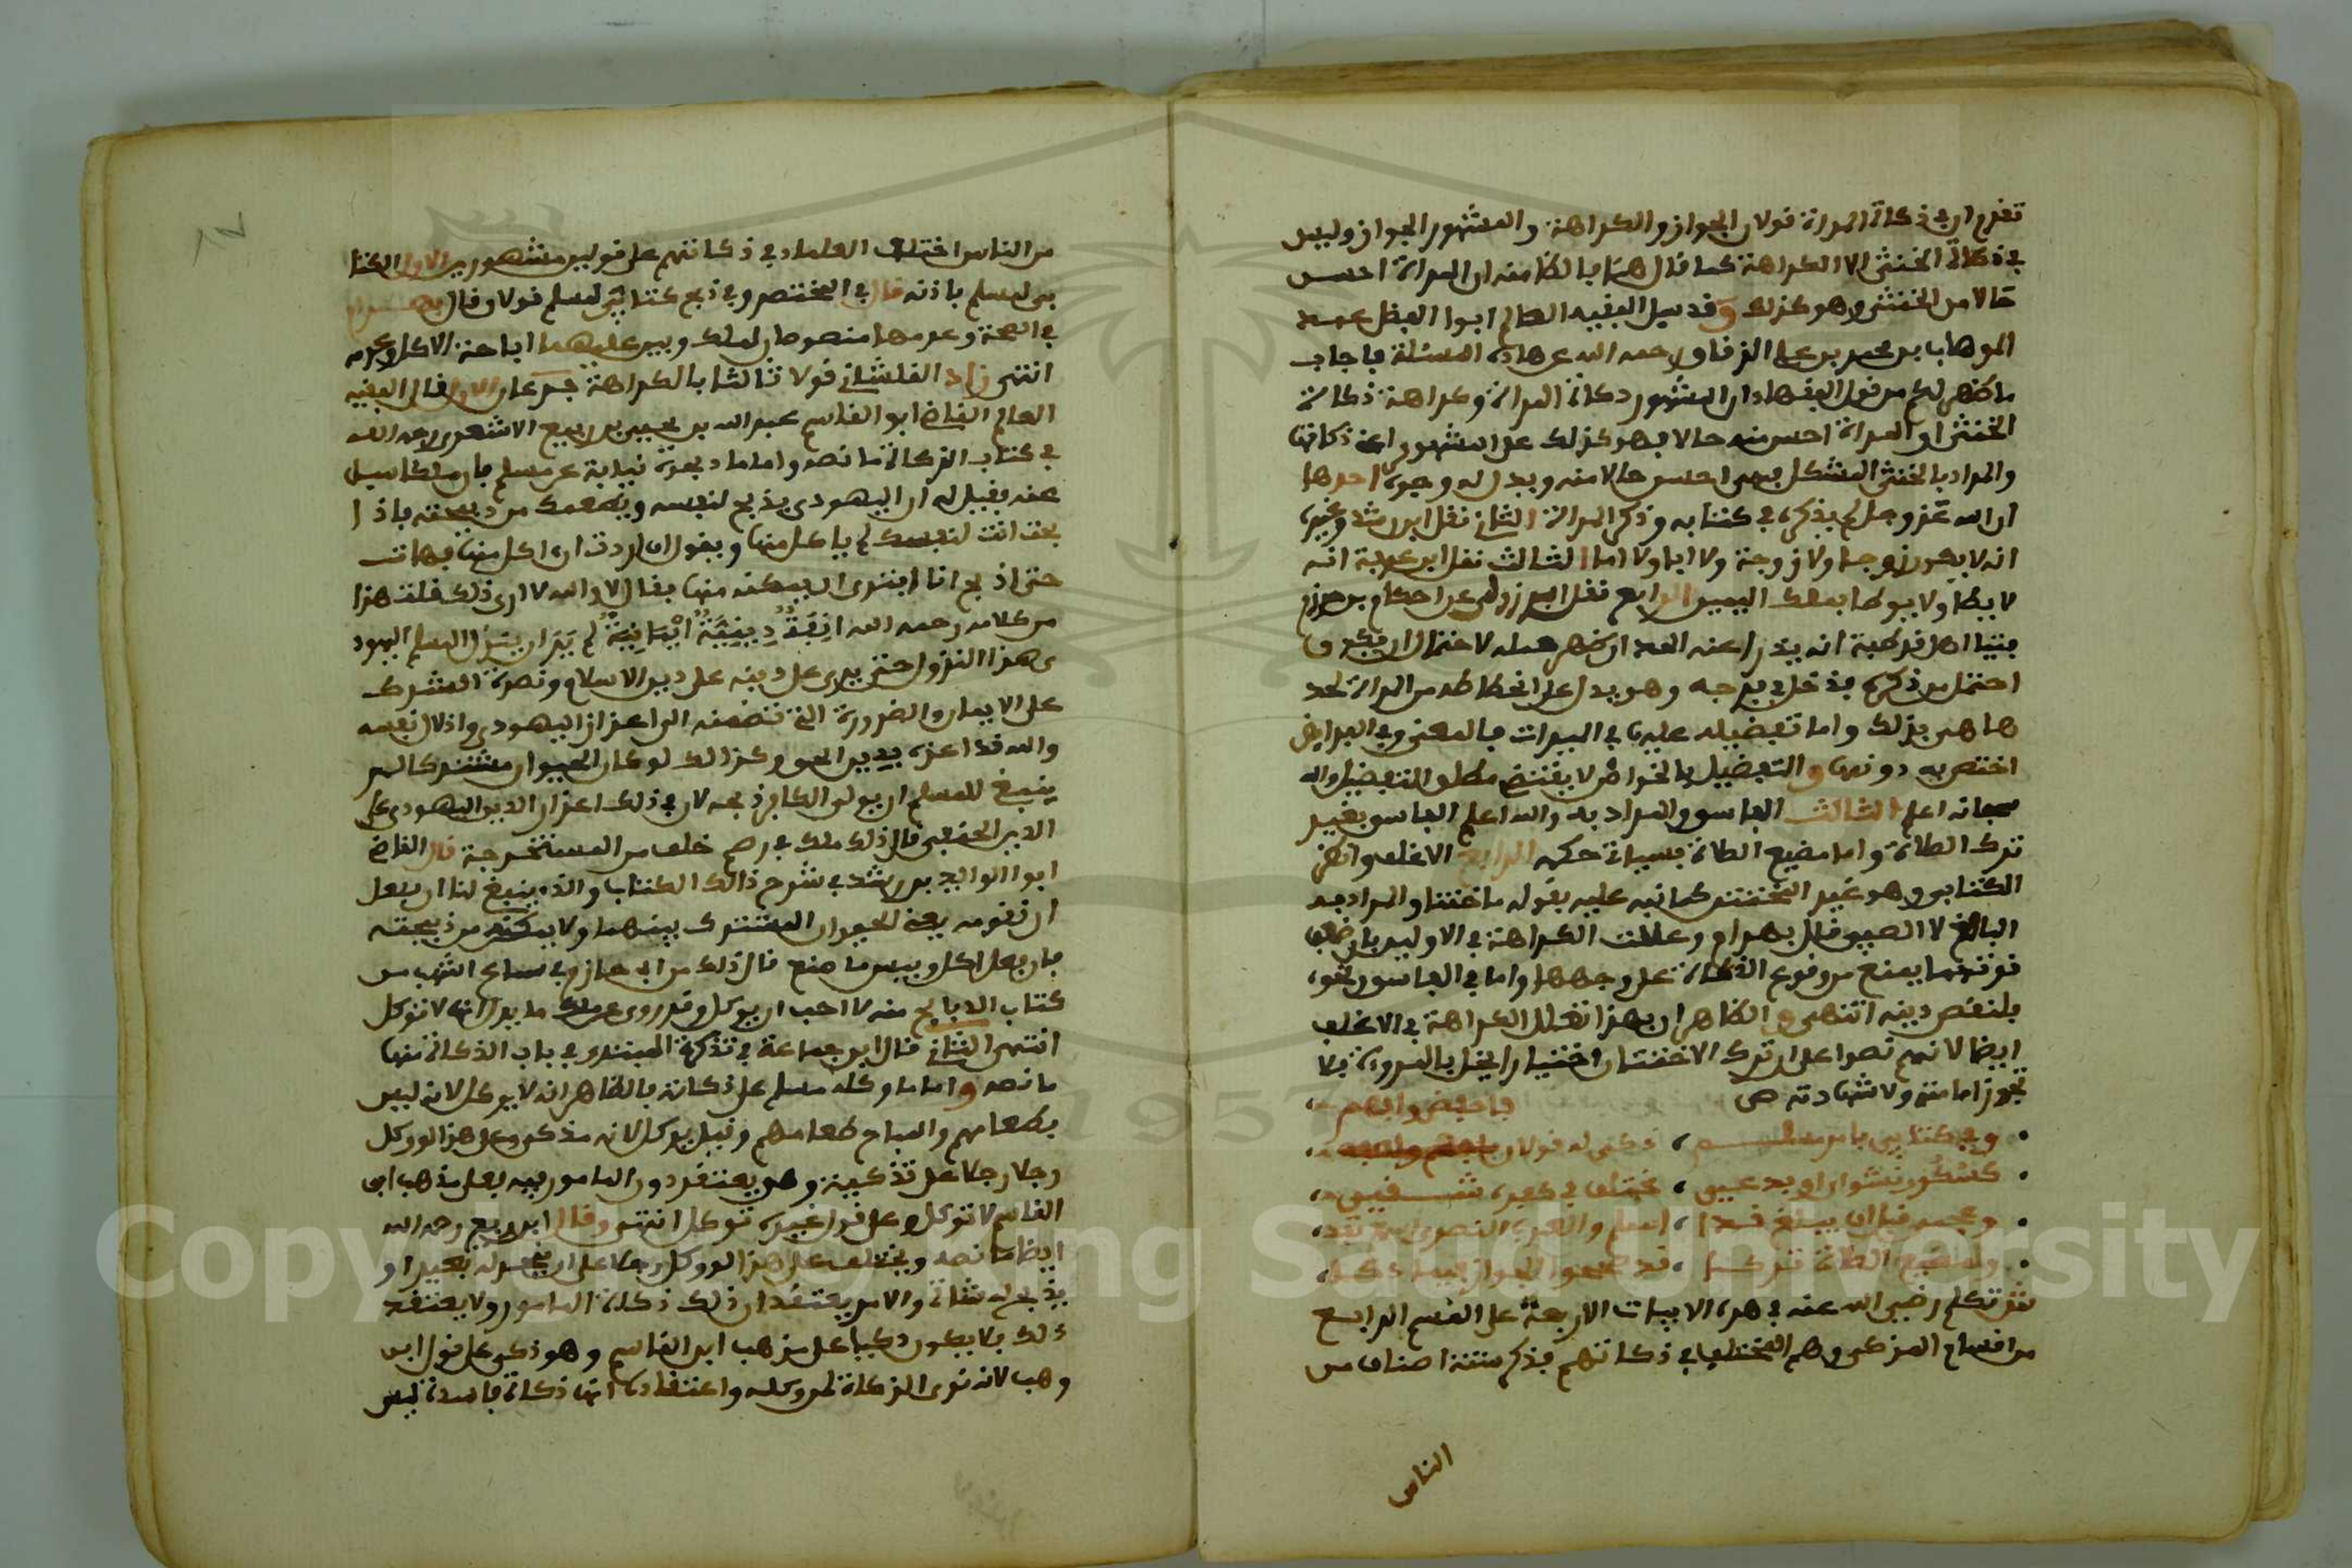 تقدم ان في ذكاة المراة قولان الجواز والكراهة والمشهور الجواز وليس
في ذكاة الخنثى الا الكراهة كما قال هنا بالظا منه ان المراة احسن
حالا من الخنثى وهو كذلك وقد سيل الفقيه العالم ابوا الفضل عبد
الوهاب بن محمد بن علي الزقاق رحمه الله عن هاذه المسئلة فاجاب
ما ظهر لكم من قول الفقهاء ان المشهور ذكاة المراة وكراهة ذكاة
الخنثى او المراة احسن منه حالا فهو كذلك على المشهور اعني ذكاتها
والمراد بالخنثى المشكل فهي احسن حالا منه ويدل له وجوه احدها
ان الله عز وجل لم يذكره في كتابه وذكر المراة الثاني نقل ابن رشد وغيره
انه لا يكون زوجا ولا زوجة ولا ابا ولا اما الثالث نقل ابن عرفة انه
لا يطا ولا يوطا بملك اليمين الرابع نقل البرزلي عن احكام بن حزم
فتيا اهل قرطبة انه يدرا عنه الحد ان ظهر حمله لاحتمال ان يكون
احتمل من ذكره فدخل في فرجه وهو يدل على انحطاطه من المراة لحد
ها هي بذلك واما تفضيله عليها في الميراث فالمعنى في الفرايض
اختص به دونها والتفضيل بالخواص لا يقتضي مطلق التفضيل والله
سبحانه اعلم الثالث الفاسق والمراد به والله اعلم الفاسق بغير
ترك الصلاة واما مضيع الصلاة فسياتي حكمه الرابع الاغلف واظن
الكتابي وهو غير المختتن كما نبه عليه بقوله ما اختتنا والمراد به
البالغ لا الصبي قال بهرام وعللت الكراهة في الاولين بان ضعف
قوتهما يمنع من وقوع الذكاة على وجهها واما في الفاسق ونحوه
فلنقص دينه انتهى والظاهر ان بهذا تعلل الكراهة في الاغلف
ايضا لانهم نصوا على ان ترك الاختتان اختيارا يخل بالمروءة فلا
تجوز امامته ولا شهادته ص
وفي كتابي بامر مسلم ذكي له قولان فاحفظ وافهم
كسكور نشوان او بدعي مختلف في كفره شقي
وعجمي قبل ان يبلغ قد اسلم والعربي النصراني
ولمضيع الصلاة تركا قد صححوا الجواز فيما ذكى
ثم تكلم رضي الله عنه في هذه الابيات الاربعة على القسم الرابع
من اقسام المذكي وهم المختلف في ذكاتهم فذكر ستة اصناف من
الناس
من الناس اختلف العلماء في ذكاتهم على قولين مشهورين الاول الكتا
بي لمسلم باذنه قال في المختصر وفي ذبح كتابي لمسلم قولان وقال بهرام
في الصحة وعدمها منصوصان لملك وبين عليهما اباحة الاكل وعدمه
انتهى زاد القلشاني قولا ثالثا بالكراهة فرعان الاول قال الفقيه
العالم القاضي ابو القاسم عبد الله بن يحيى بن ربيع الاشعري رحمه الله
في كتاب الزكاة ما نصه واما ما ذبحه نيابة عن مسلم فان ملكا سيل
عنه فقيل له ان اليهودي يذبح لنفسه ويطعمك من ذبيحته فاذا
بحت انت لنفسك لم ياكل منها ويقول ان اردت ان اكل منها فهات
حتى اذبح انا افترى ان يمكنه منها فقال لا والله لا ارى ذلك قلت هذا
من كلامه رحمه الله انفة دينية ايمانية لم ير ان ينزل المسلم اليهود
ي هذا النزول حتى يرى على دينه على دين الاسلام ونصرة المشرك
على الايمان والضرورة التي تضمنه الى اعزاز اليهودي واذلال نفسه
والله قد اعزه بدين الحق وكذالك لو كان الحيوان مشتركا لم
ينبغ للمسلم ان يولي الكافر ذبحه لان في ذلك اعزاز الدين اليهودي على
الدين الحنفي قال ذلك ملك في رسم خلف من المستخرجة قال القاضي
ابوا الوليد بن رشد في شرح ذالك الكتاب والذي ينبغي لنا ان يفعل
ان نقومه يعني الحيوان المشترك بينهما ولا يمكنه من ذبيحته
فان فعل اكل وبيس ما صنع قال ذلك من ابى حازم في سماع اشهب من
كتاب الذبايح منه لا احب ان يوكل وقد روى عن ملك ما يدل انها لا توكل
انتهى الثاني قال ابن جماعة في تذكرة المبتدي في باب الذكاة منها
ما نصه واما ما وكله مسلم على ذكاته فالظاهر انه لا يوكل لانه ليس
بطعامهم والمباح طعامهم وقيل يوكل لانه مذكي وعلى هذا لو وكل
رجل رجلا على تذكيته وهو يعتقد دون المامور بيه فعلى مذهب ابن
القاسم لا توكل وعلى قول غيره توكل انتهى وقال ابن ربيع رحمه الله
ايضا ما نصه ويختلف على هذا لو وكل رجلا على ان ينحر له بعيرا او
يذبح له شاة والامر يعتقد ان ذلك ذكاة المامور ولا يعتقد
ذلك فلا يكون ذكيا على مذهب ابن القاسم وهو ذكي على قول ابن
وهب لانه نوى الذكاة لموكله واعتقاده انها ذكاة فاسدة ليس